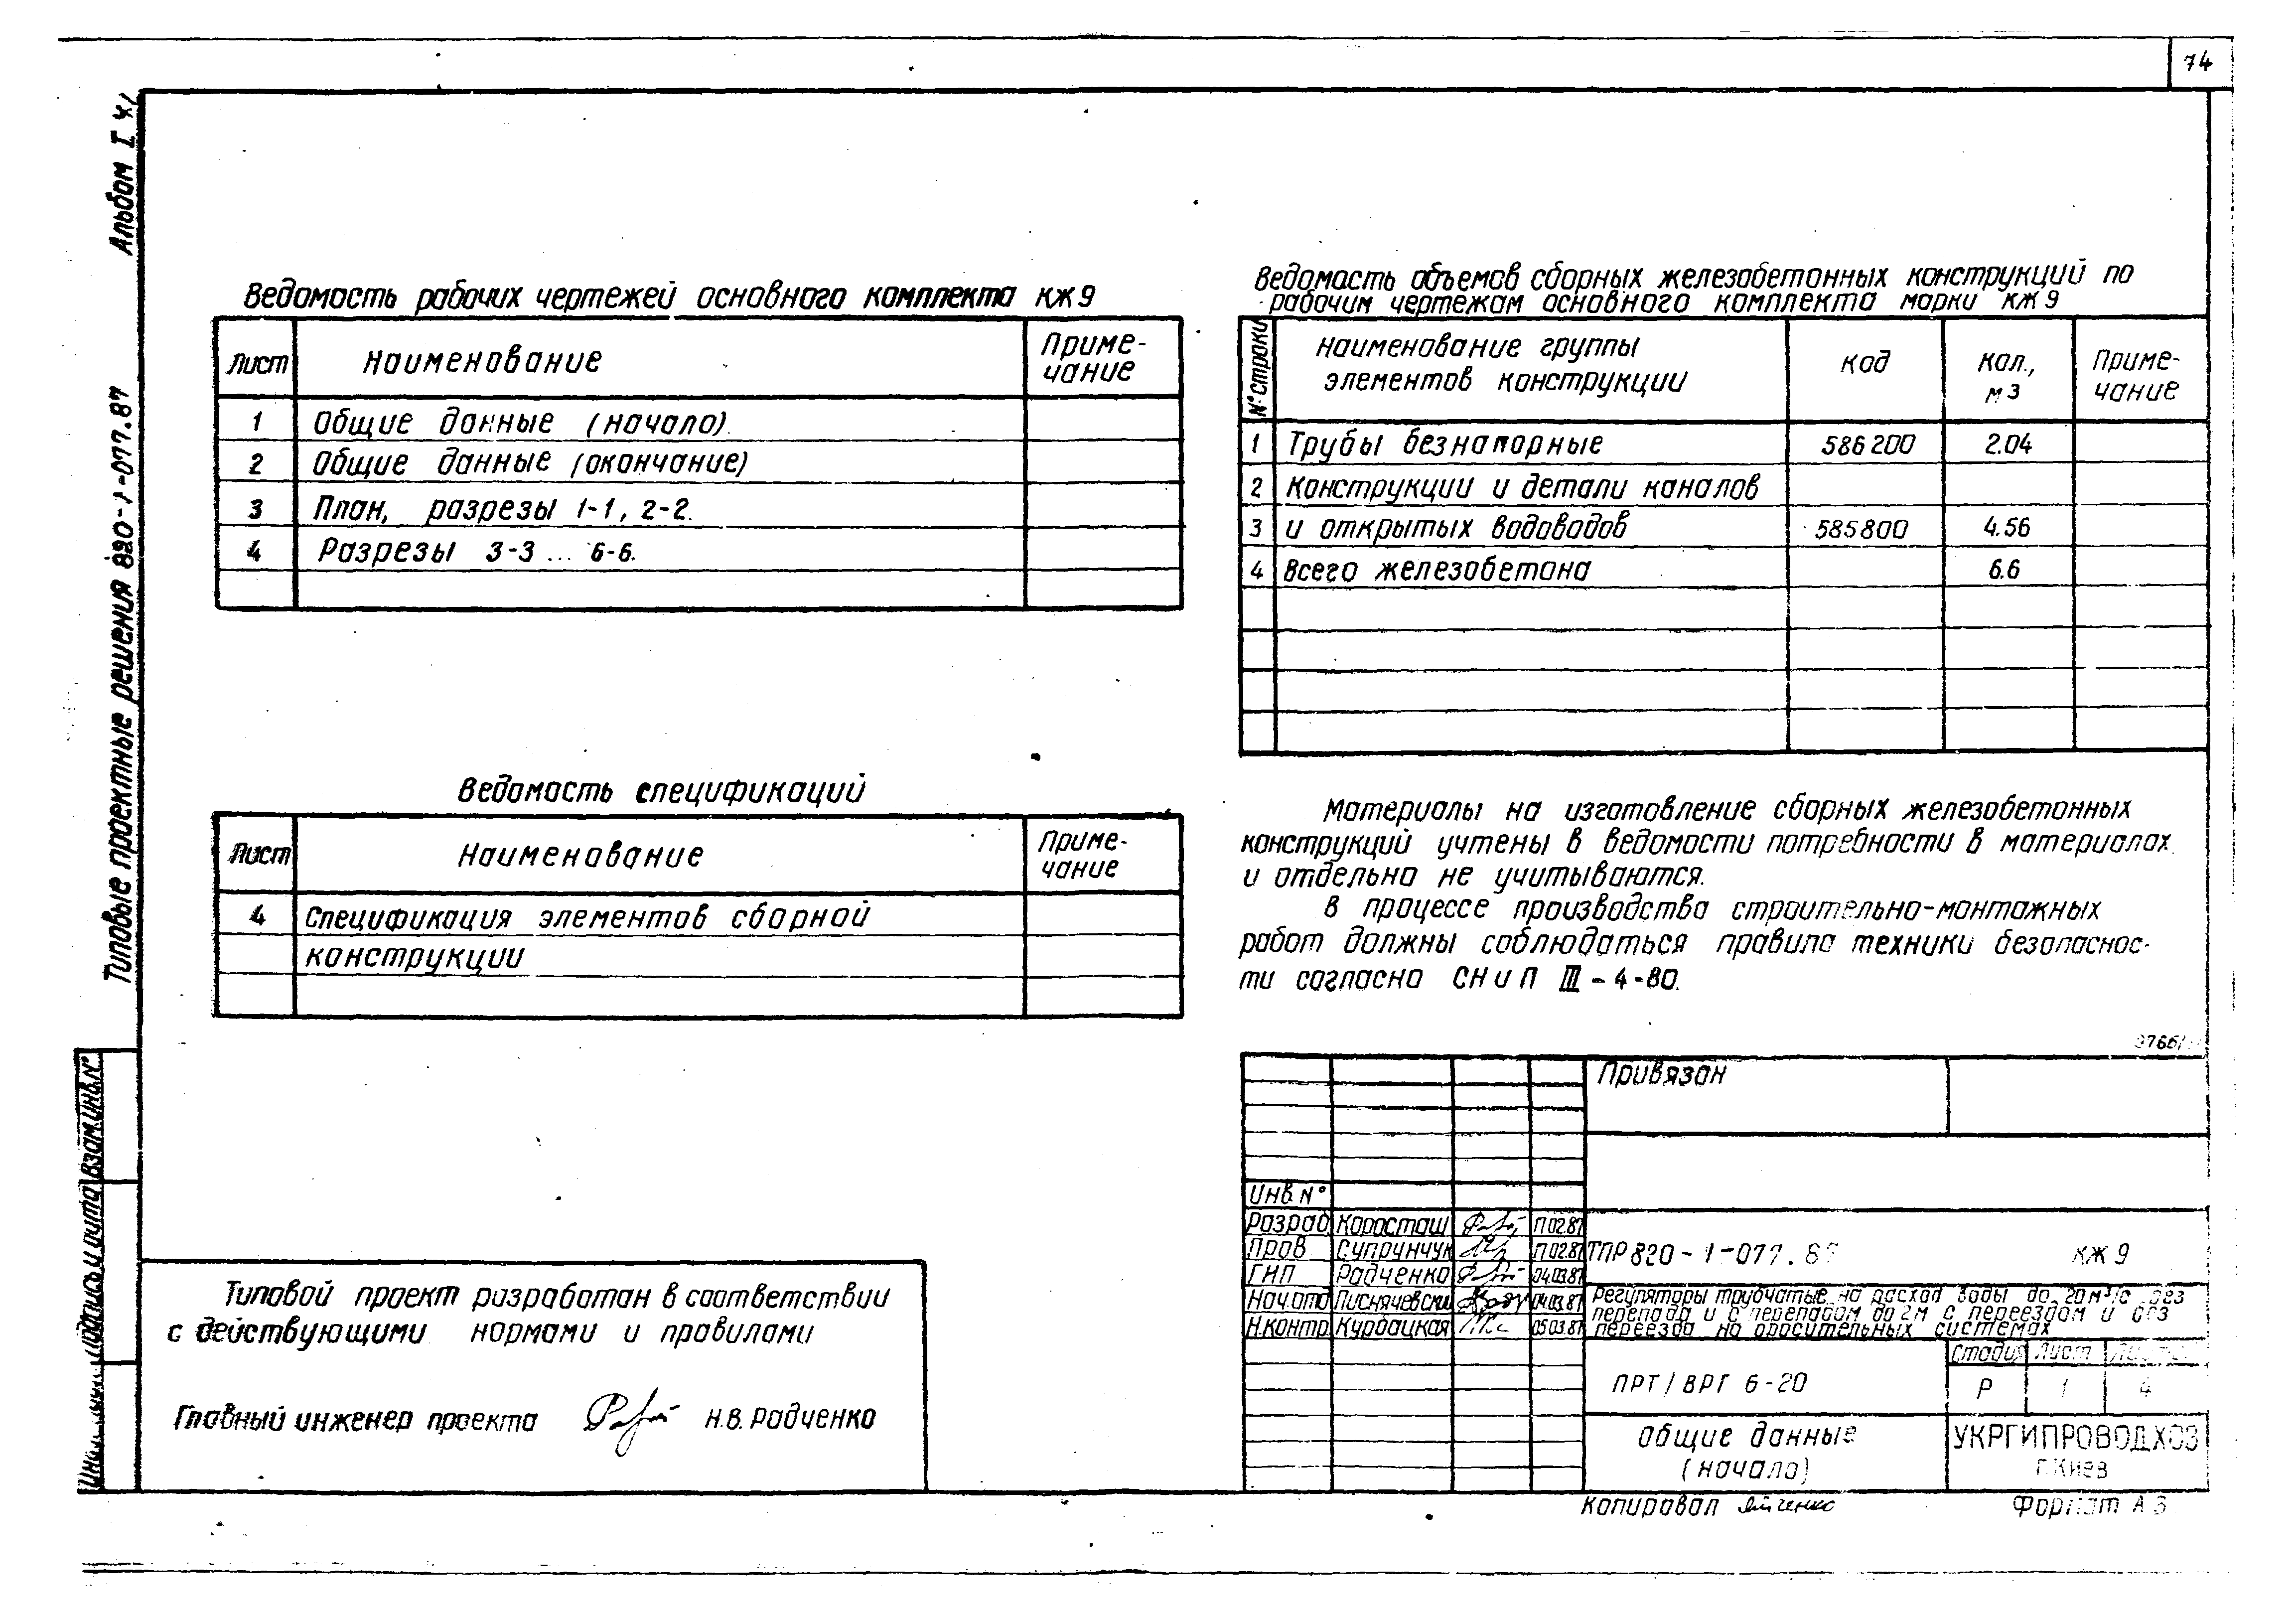 74
Альбом I ч.1
Типовые проектные решения 820-1-077.87
Ведомость рабочих чертежей основного комплекта КЖ9
Лист Наименование Приме-
чание
1 Общие данные (начало).
2 Общие данные (окончание)
3 План, разрезы 1-1, 2-2.
4 Разрезы 3-3 ... 6-6.
Ведомость спецификаций
Лист Наименование Приме-
чание
4 Спецификация элементов сборной
конструкции
Ведомость объемов сборных железобетонных конструкций по
рабочим чертежам основного комплекта марки КЖ9
№ строки Наименование группы
элементов конструкции Код Кол.,
м3 Приме-
чание
1 Трубы безнапорные 586200 2.04
2 Конструкции и детали каналов
3 и открытых водоводов 585800 4.56
4 Всего железобетона 6.6
Материалы на изготовление сборных железобетонных
конструкций учтены в ведомости потребности в материалах
и отдельно не учитываются.
В процессе производства строительно-монтажных
работ должны соблюдаться правила техники безопаснос-
ти согласно СНиП III-4-80.
Взам.инв.№
Подпись и дата
Типовой проект разработан в соответствии
с действующими нормами и правилами
Главный инженер проекта Н.В. Радченко
Привязан
Инв.№
Разраб Коросташ 11.02.87
Пров Супрунчук 11.02.87
ГИП Радченко 04.03.87
Нач.отд 04.03.87
Н.контр. Курбацкая 05.03.87
ТПР 820-1-077.87 КЖ9
Регуляторы трубчатые на расход воды до 20м³/с без
перепада и с перепадом до 2м с переездом и без
переезда на оросительных системах
ПРТ/ВРГ 6-20
Стадия Лист Листов
Р 1 4
Общие данные
(начало)
УКРГИПРОВОДХОЗ
г.Киев
Копировал
Формат А3